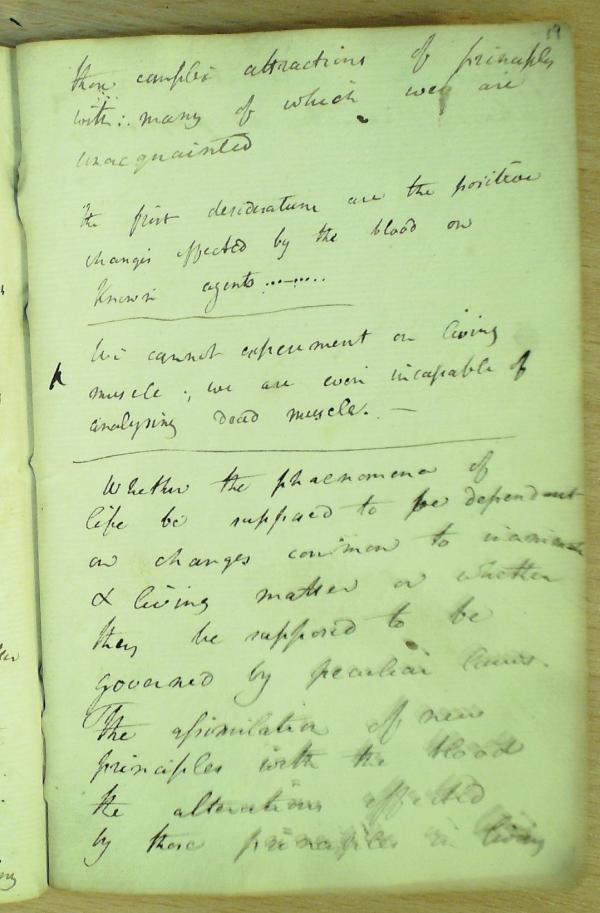 19
those complex attractions of principles
with: many of which we are
unacquainted
The first desideratum are the positive
changes effected by the blood on
known agents .........
We cannot experiment on living
muscle:, we are even incapable of
analysing dead muscle. —
Whether the phaenomena of
life be supposed to be dependant
on changes common to inanimate
& living matter or whether
they be supposed to be
governed by peculiar laws.
The assimilation of new
principles with the blood
the alterations effected
by these principles in living